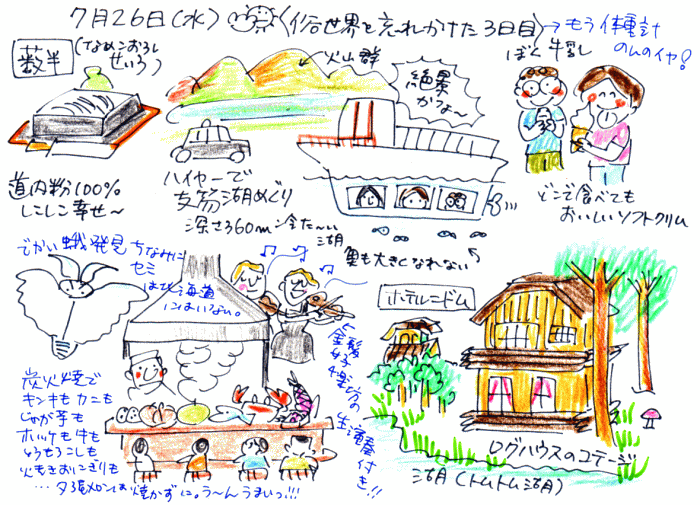 7月26日(水)
(俗世界を忘れかけた3日目)
→もう体重計
のんのイヤ!
籔半
(なめこおろし
せいろ)
火山群
絶景
かつよ〜
ぼく 牛乳
道内粉100%
しこしこ幸せ〜
ハイヤーで
支笏湖めぐり
深さ360m 冷た〜い
湖
魚も大きくなれない
どこで食べても
おいしいソフトクリーム
でかい蛾発見
ちなみに
セミ
は北海道
にはいない。
ホテルニドム
金髪
女子
4楽
方の
生演奏
付き!!
炭火焼で
キンキもカニも
じゃが芋も
ホッケも牛も
とうもろこしも
火もきおにぎりも
…夕張メロンは焼かずに。う〜んうまいっ!!!
ログハウスのコテージ
湖(トムトム湖)